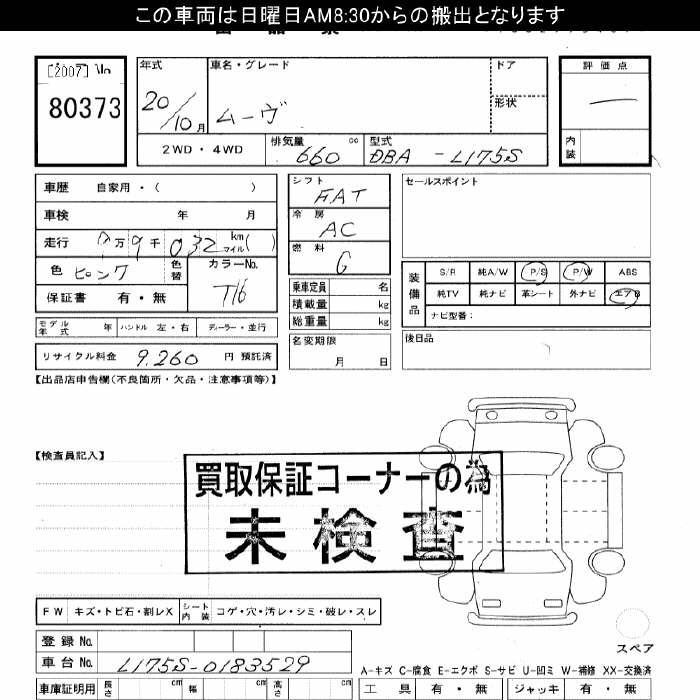 この車両は日曜日AM8:30からの搬出となります
[2007] No
80373
年式
20/10月
車名・グレード
ムーヴ
ドア
形状
評価点
内装
2WD・4WD
排気量
660 cc
型式
DBA - L175S
車歴 自家用・( )
車検 年 月
走行 万9千032 km マイル( )
色 ピンク
色替
カラーNo.
T16
保証書 有・無
モデル年式 年
ハンドル 左・右
ディーラー・並行
リサイクル料金 9,260 円 預託済
シフト
FAT
冷房
AC
燃料
G
乗車定員 名
積載量 kg
総重量 kg
名変期限
月 日
セールスポイント
装備品
S/R 純A/W P/S P/W ABS
純TV 純ナビ 革シート 外ナビ エアB
ナビ型番:
後日品
【出品店申告欄(不良箇所・欠品・注意事項等)】
【検査員記入】
買取保証コーナーの為
未検査
FW キズ・トビ石・割レX
シート内装 コゲ・穴・汚レ・シミ・破レ・スレ
スペア
登録 No.
車台 No. L175S-0183529
A-キズ C-腐食 E-エクボ S-サビ U-凹ミ W-補修 XX-交換済
車庫証明用 長さ cm 幅 cm 高さ cm
工具 有・無 ジャッキ 有・無